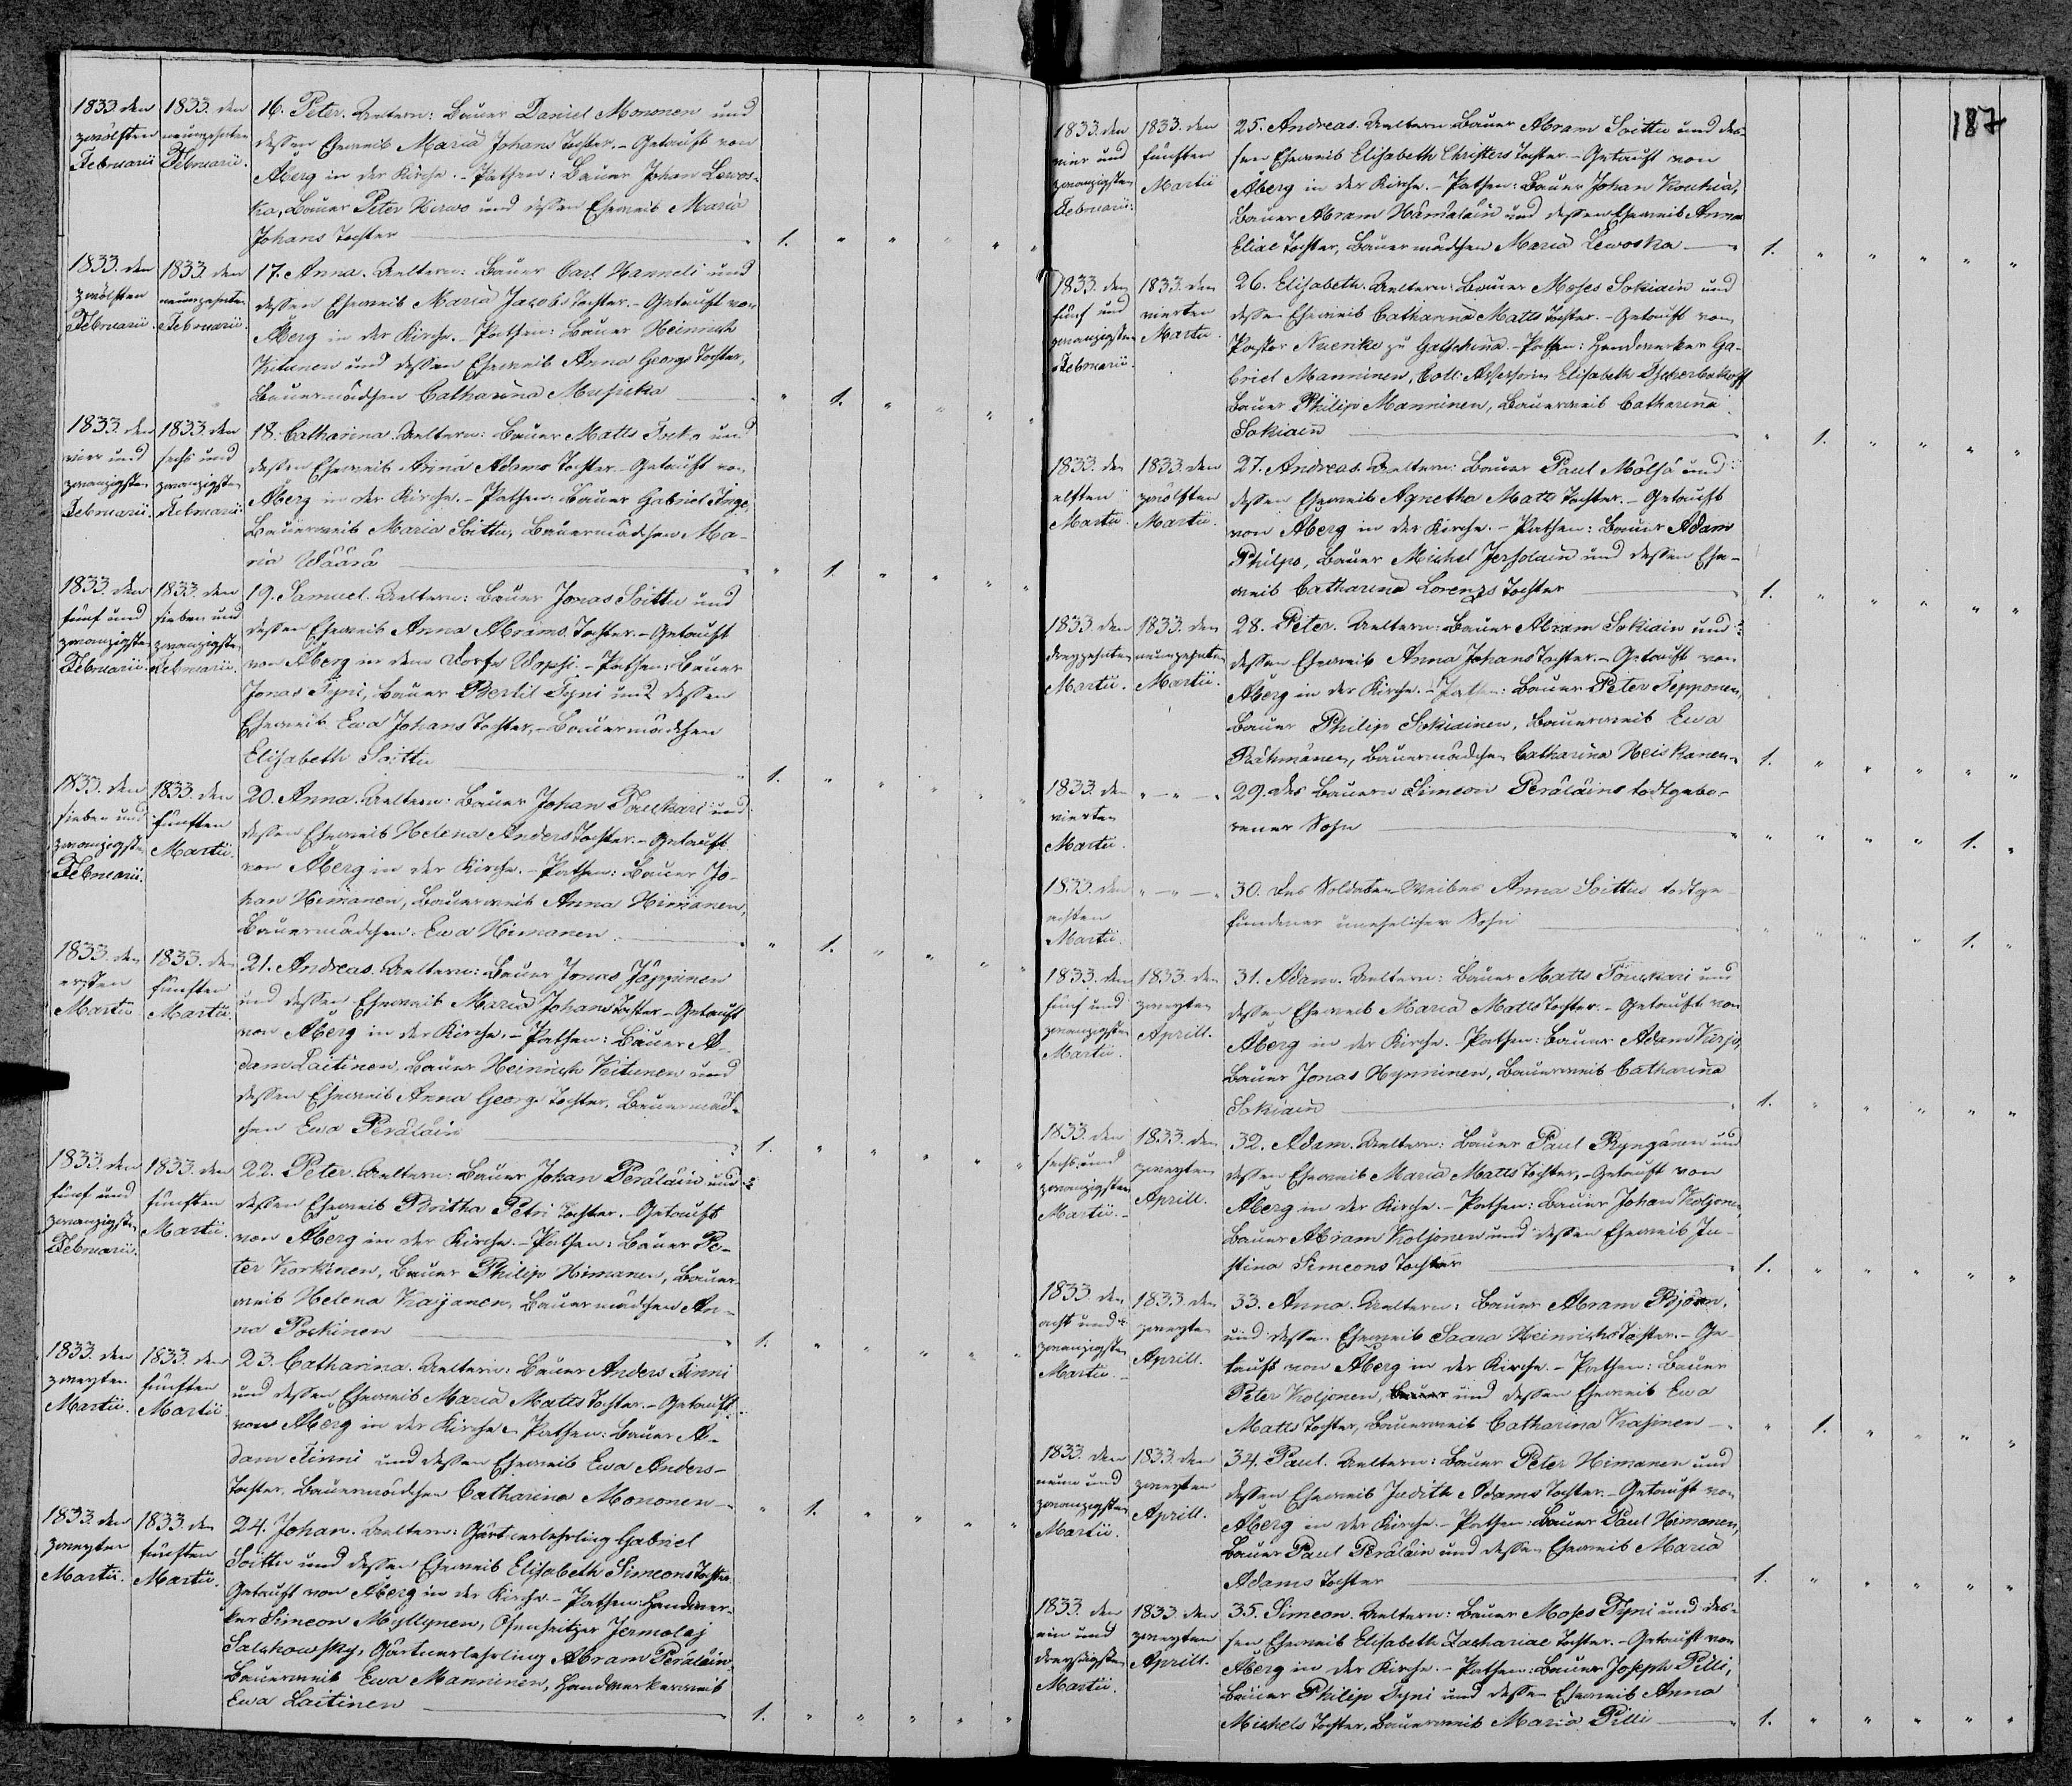 1833 den zwölften Februarii
1833. den neunzehnten Februarii.
16. Peter. Aeltern: Bauer Daniel Mononen und
dessen Eheweib Maria Johans Tochter. - Getauft von
Åberg in der Kirche. - Pathen: Bauer Johan Lewos-
ka, Bauer Peter Kirwo und dessen Eheweib Maria
Johans Tochter 1.
1833. den zwölften Februarii.
1833. den neunzehnten Februarii.
17. Anna. Aeltern: Bauer Carl Hanneli und
dessen Eheweib Maria Jacobs Tochter. - Getauft von
Åberg in der Kirche. - Pathen: Bauer Heinrich
Kitunen und dessen Eheweib Anna Georgs Tochter,
Bauermädchen Catharina 1.
1833. den vier und zwanzigsten Februarii.
1833. den sechs und zwanzigsten Februarii.
18. Catharina. Aeltern: Bauer Matts und
dessen Eheweib Anna Adams Tochter. - Getauft von
Åberg in der Kirche. - Pathen: Bauer Gabriel Inge,
Bauerweib Maria Soittu, Bauermädchen Ma-
ria Wäärä 1.
1833. den fünf und zwanzigsten Februarii.
1833. den sieben und zwanzigsten Februarii.
19. Samuel. Aeltern: Bauer Jonas Soittu und
dessen Eheweib Anna Abrams Tochter. - Getauft
von Åberg in dem Dorfe Wopsi. - Pathen: Bauer
Jonas Tyni, Bauer Bertil Tyni und dessen
Eheweib Ewa Johans Tochter, - Bauermädchen
Elisabeth Soittu 1.
1833. den sieben und zwanzigsten Februarii.
1833. den fünften Martii.
20. Anna. Aeltern: Bauer Johan Toukari und
dessen Eheweib Helena Anders Tochter. - Getauft
von Åberg in der Kirche. - Pathen: Bauer Jo-
han Himanen, Bauerweib Anna Himanen,
Bauermädchen Ewa Himanen 1.
1833. den ersten Martii
1833. den fünften Martii.
21. Andreas. Aeltern: Bauer Jonas Jäppinen
und dessen Eheweib Maria Johans Tochter. - Getauft
von Åberg in der Kirche. - Pathen: Bauer A-
dam Laitinen, Bauer Heinrich Kitunen und
dessen Eheweib Anna Georgs Tochter, Bauermäd-
chen Ewa Peräläin 1.
1833. den fünf und zwanzigsten Februarii.
1833. den fünften Martii.
22. Peter. Aeltern: Bauer Johan Peräläin und
dessen Eheweib Britha Petri Tochter. - Getauft
von Åberg in der Kirche. - Pathen: Bauer Pe-
ter Korkinen, Bauer Philip Himanen, Bauer-
weib Helena Kaijanen, Bauermädchen An-
na Porkinen 1.
1833. den zweyten Martii.
1833. den fünften Martii
23. Catharina. Aeltern: Bauer Anders Finni
und dessen Eheweib Maria Matts Tochter. - Getauft
von Åberg in der Kirche. Pathen: Bauer A-
dam Finni und dessen Eheweib Ewa Anders-
Tochter, Bauermädchen Catharina Mononen 1.
1833. den zweyten Martii.
1833. den fünften Martii.
24. Johan. Aeltern: Gärtnerlehrling Gabriel
Soittu und dessen Eheweib Elisabeth Simeons Tochter.
Getauft von Åberg in der Kirche. - Pathen: Handwer-
ker Simeon Myllynen, Jermolaj
Salchowsky, Gärtnerlehrling Abram Peräläin,
Bauerweib Ewa Manninen, Handwerkerweib
Ewa Laitinen 1.
187
1833. den vier und zwanzigsten Februarii.
1833. den fünften Martii
25. Andreas. Aeltern: Bauer Abram Soittu und des-
sen Eheweib Elisabeth Christers Tochter. - Getauft von
Åberg in der Kirche. - Pathen: Bauer Johan Koukia,
Bauer Abram Hämäläin und dessen Eheweib Anna
Eliae Tochter, Bauermädchen Maria Lewoska 1.
1833. den fünf und zwanzigsten Februarii.
1833. den vierten Martii.
26. Elisabeth. Aeltern: Bauer Moses Sokiain und
dessen Eheweib Catharina Matts Tochter. - Getauft vom
Pastor zu Gatschina. - Pathen: Handwerker Ga-
briel Manninen, Coll: Assessorin Elisabeth Tscherbakoff
Bauer Philip Manninen, Bauerweib Catharina
Sokiain 1.
1833. den elften Martii.
1833. den zwölften Martii.
27. Andreas. Aeltern: Bauer Paul Mölsä und
dessen Eheweib Agnetha Matts Tochter. - Getauft
von Åberg in der Kirche. - Pathen: Bauer Adam
Philpo, Bauer Michel Jerholain und dessen Ehe-
weib Catharina Lorenzs Tochter 1.
1833 den dreyzehnten Martii.
1833. den neunzehnten Martii.
28. Peter. Aeltern: Bauer Abram Sokiain und
dessen Eheweib Anna Johans Tochter. - Getauft von
Åberg in der Kirche. - Pathen: Bauer Peter Tepponen,
Bauer Philip Sokiainen, Bauerweib Ewa
Rähmänen, Bauermädchen Catharina Heiskanen 1.
1833. den vierten Martii.
29. des Bauern Simeon Peräläins todtgebo-
rener Sohn 1.
1833. den achten Martii.
30. des Soldaten-Weibes Anna Soittus todtge-
fundener unehelicher Sohn 1.
1833. den fünf und zwanzigsten Martii.
1833. den zweyten Aprill.
31. Adam. Aeltern: Bauer Matts Toukari und
dessen Eheweib Maria Matts Tochter. - Getauft von
Åberg in der Kirche. - Pathen: Bauer Adam Kirjo,
Bauer Jonas Hynninen, Bauerweib Catharina
Sokiain 1.
1833. den sechs und zwanzigsten Martii.
1833. den zweyten Aprill.
32. Adam. Aeltern: Bauer Paul Ryngänen und
dessen Eheweib Maria Matts Tochter, - Getauft von
Åberg in der Kirche. - Pathen: Bauer Johan Koljonen,
Bauer Abram Koljonen und dessen Eheweib Ju-
stina Simeons Tochter 1.
1833. den acht und zwanzigsten Martii.
1833. den zweyten Aprill.
33. Anna. Aeltern: Bauer Abram Björn,
und dessen Eheweib Saara Heinrichs Tochter. - Ge-
tauft von Åberg in der Kirche. - Pathen: Bauer
Peter Koljonen, Bauer und dessen Eheweib Ewa
Matts Tochter, Bauerweib Catharina Kasinen 1.
1833. den neun und zwanzigsten Martii.
1833. den zweyten Aprill.
34. Paul. Aeltern: Bauer Peter Himanen und
dessen Eheweib Judith Adams Tochter. - Getauft von
Åberg in der Kirche. - Pathen: Bauer Paul Himanen,
Bauer Paul Peräläin und dessen Eheweib Maria
Adams Tochter 1.
1833. den ein und dreyßigsten Martii.
1833. den zweyten Aprill.
35. Simeon. Aeltern: Bauer Moses Tyni und des-
sen Eheweib Elisabeth Zachariae Tochter. - Getauft von
Åberg in der Kirche. - Pathen: Bauer Joseph Pilli,
Bauer Philip Tyni und dessen Eheweib Anna
Michels Tochter, Bauerweib Maria Pilli 1.